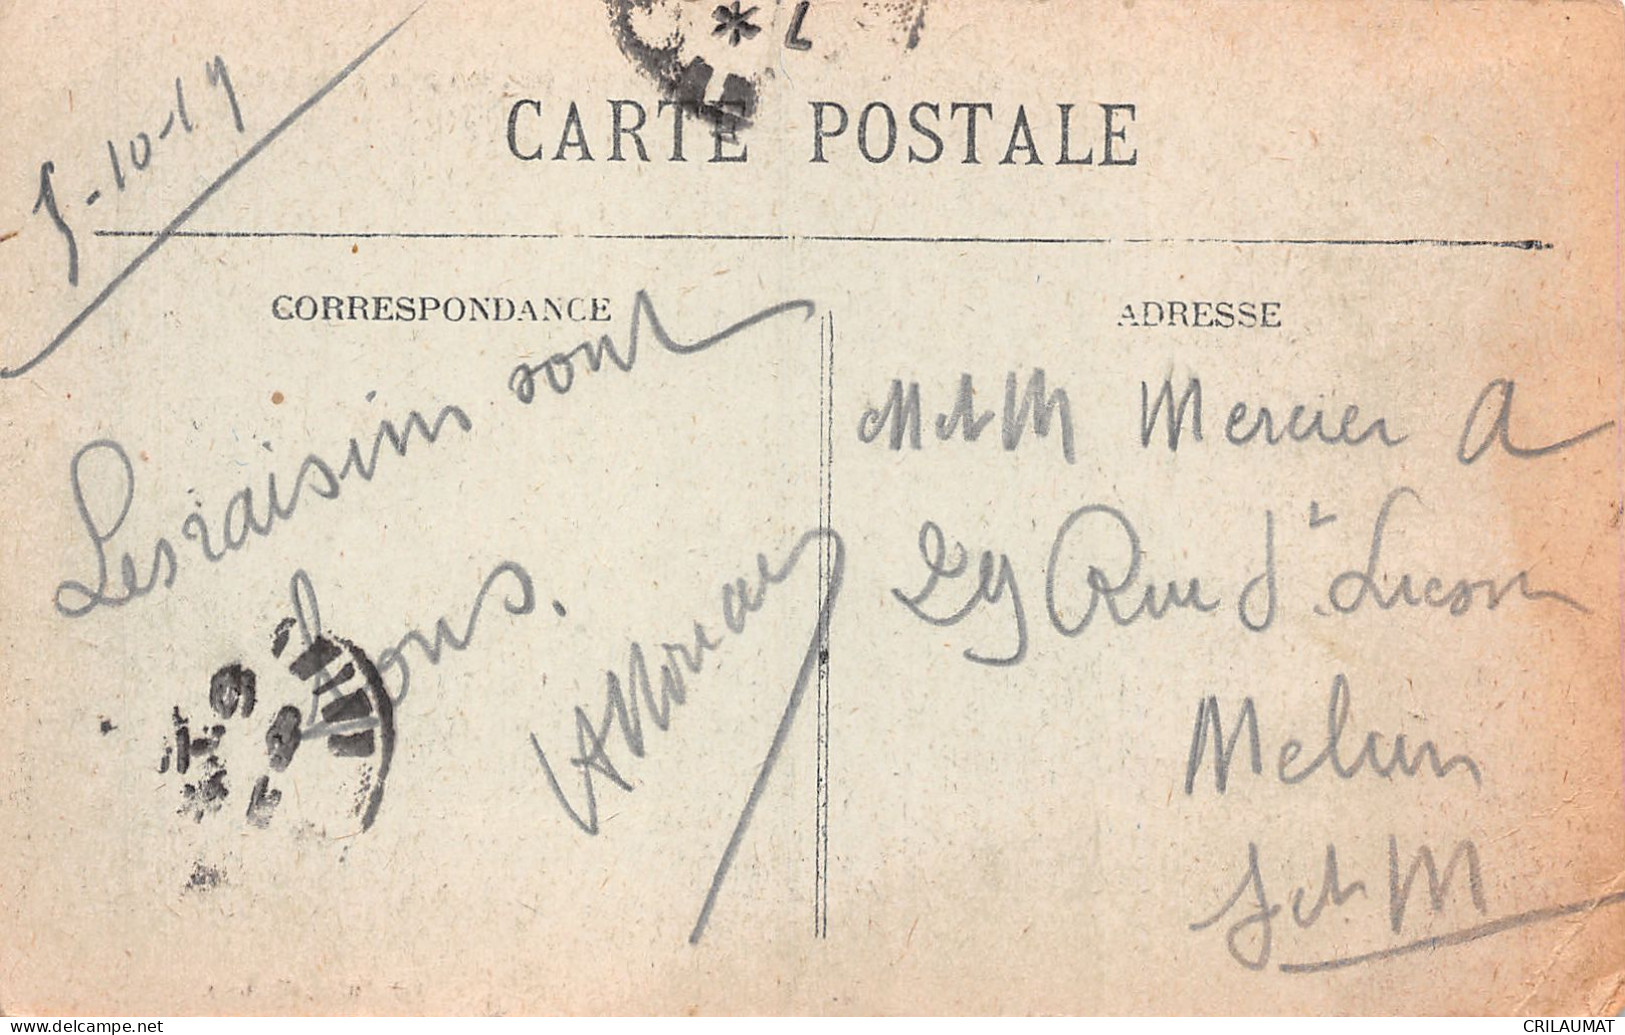 5-10-19
CARTE POSTALE
CORRESPONDANCE
Les raisins sont
bons.
ADRESSE
M et M Mercier A
29 Rue d'
Melun
S et M
www.delcampe.net
CRILAUMAT